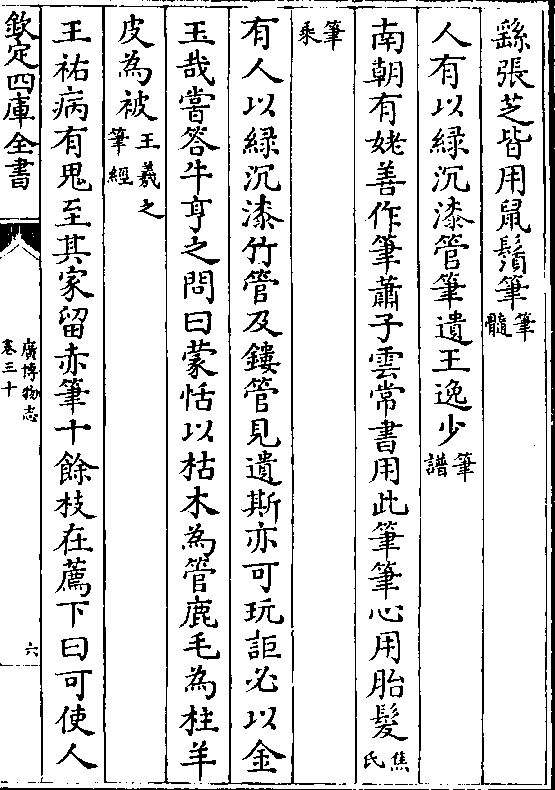 繇張芝皆用鼠鬚筆筆髓
人有以綠沉漆管筆遺王逸少筆譜
南朝有姥善作筆蕭子雲常書用此筆筆心用胎髮焦氏
筆乘
有人以綠沉漆竹管及鏤管見遺斯亦可玩詎必以金
玉哉嘗答牛亨之問曰蒙恬以枯木為管鹿毛為柱羊
皮為被王羲之筆經
王祐病有鬼至其家留赤筆十餘枝在薦下曰可使人
欽定四庫全書
廣博物志
卷三十
六